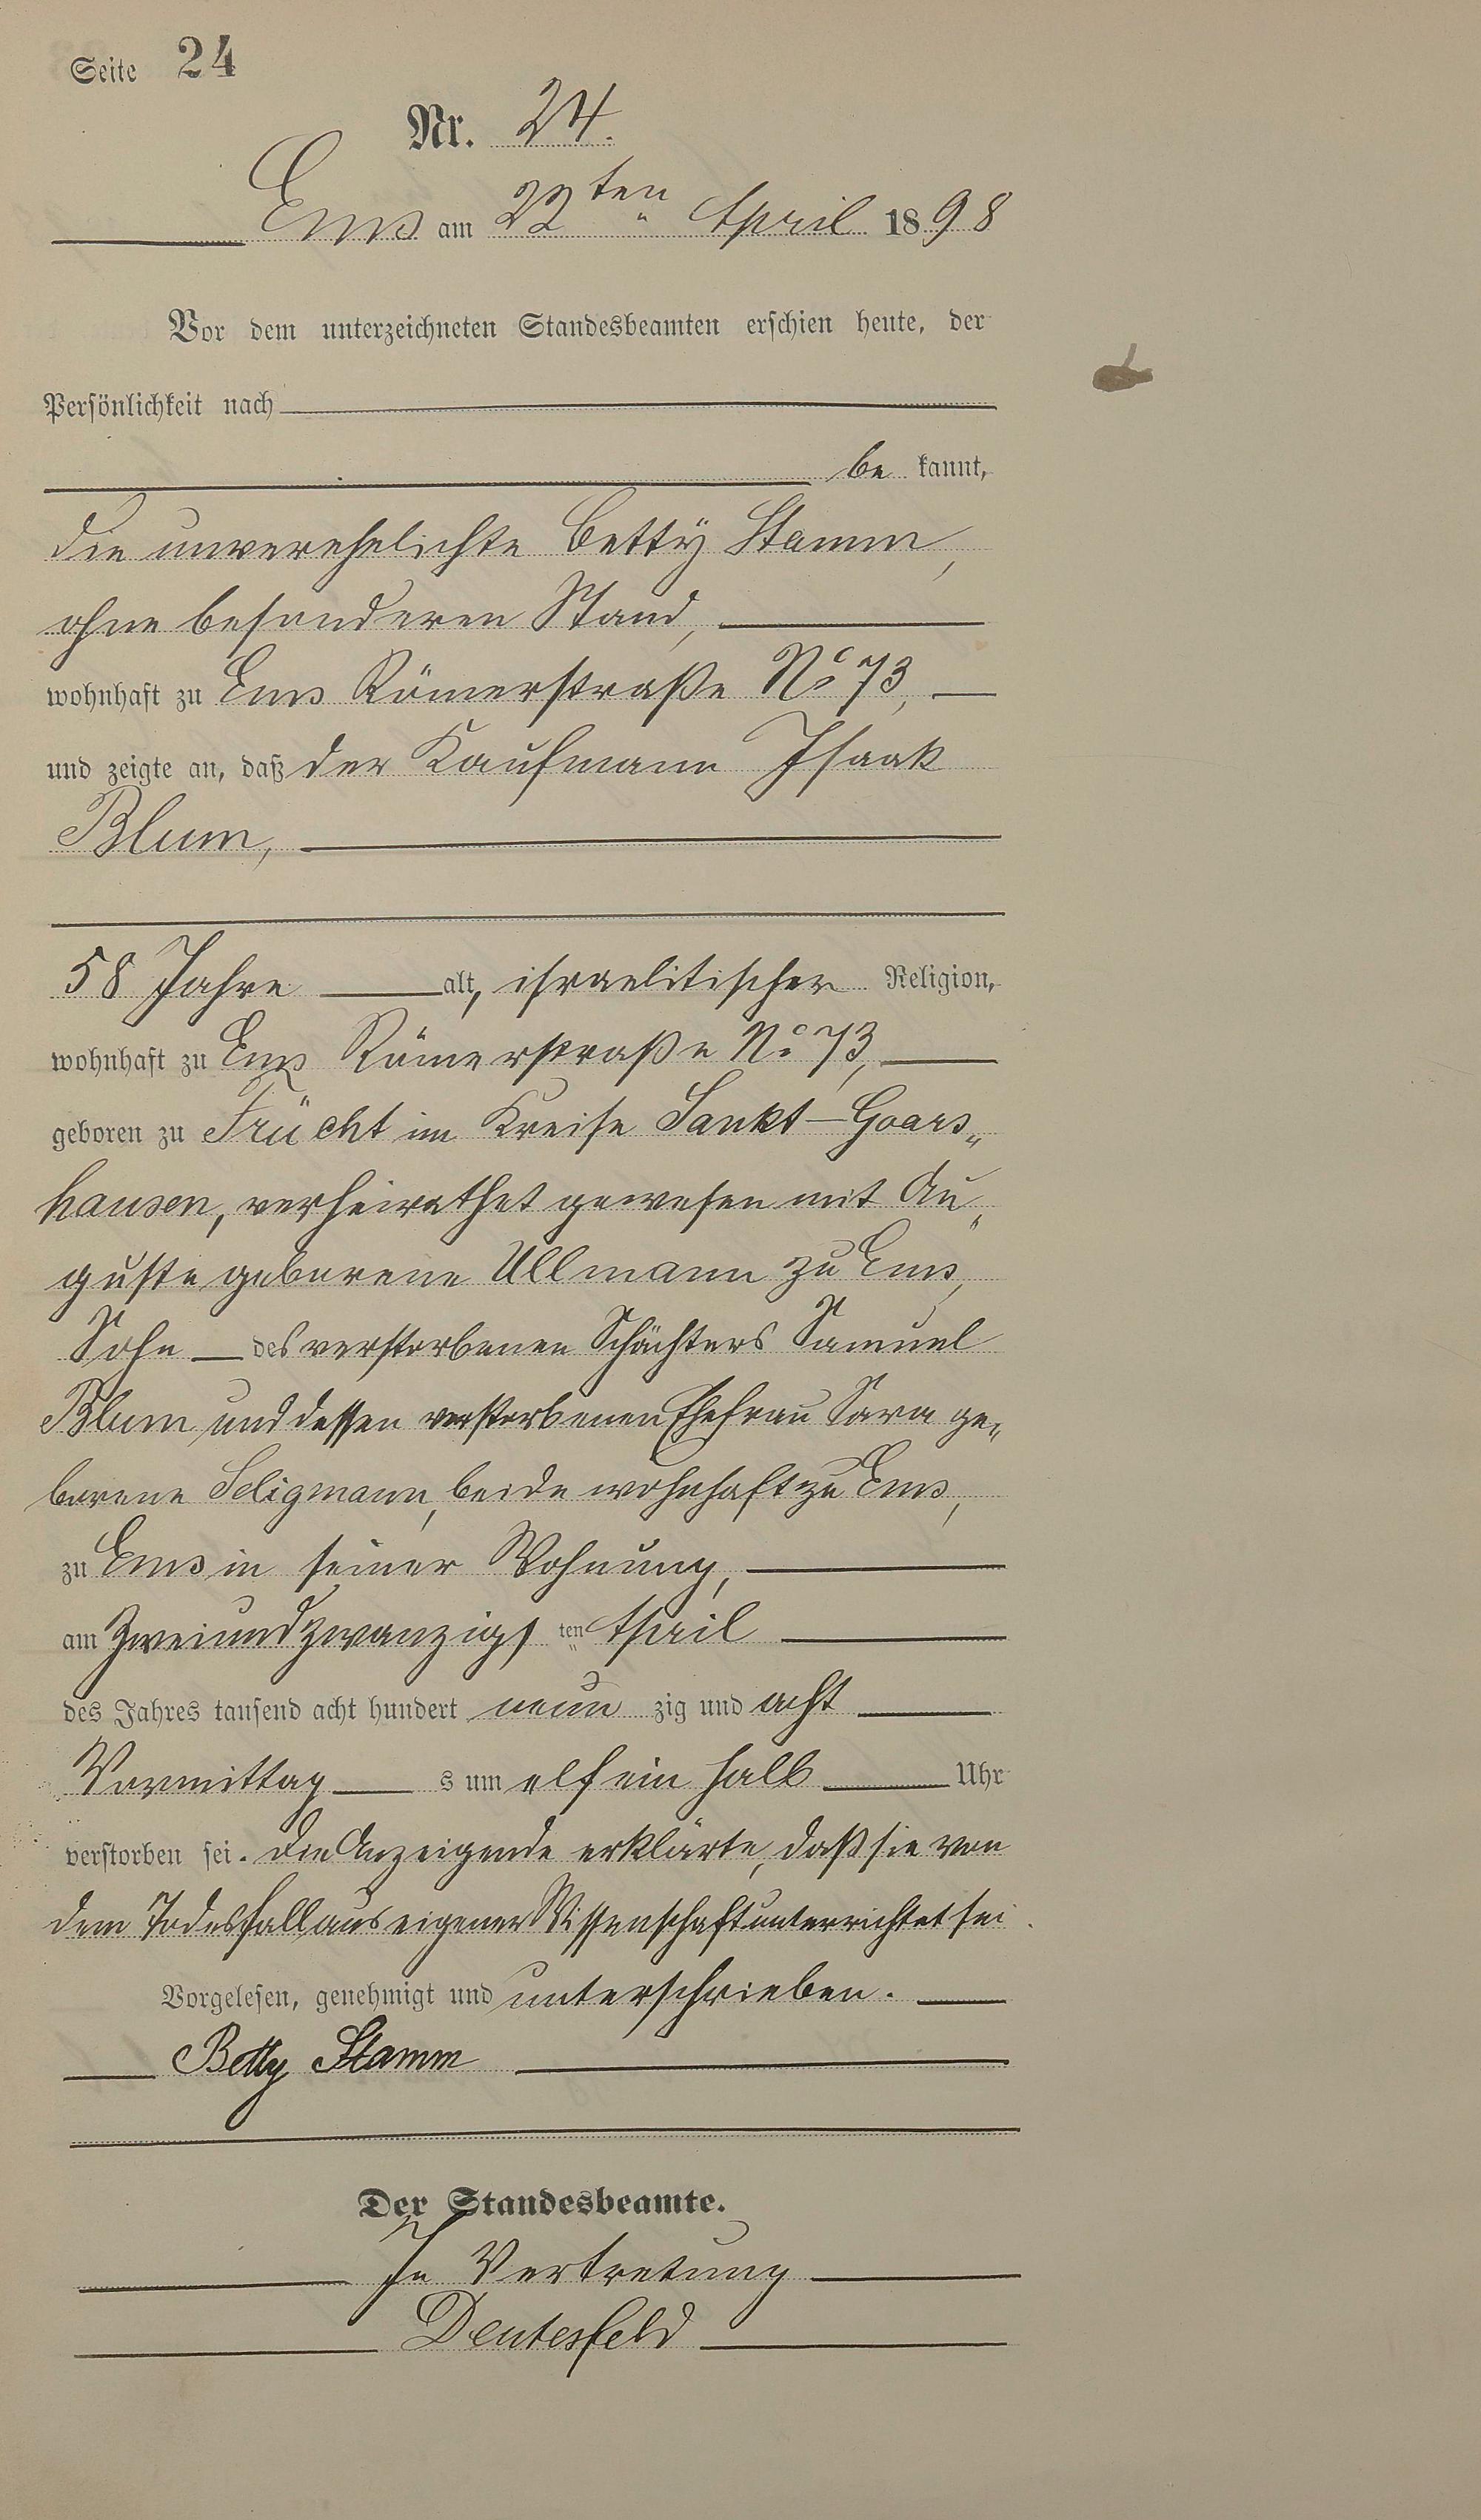 Seite 24
Nr. 24.
Ems am 22ten April 1898
Vor dem unterzeichneten Standesbeamten erschien heute, der
Persönlichkeit nach
be kannt,
die unverehelichte Betty Stamm,
ohne besonderen Stand,
wohnhaft zu Ems Römerstraße No 73,
und zeigte an, daß der Kaufmann Isaak
Blum,
58 Jahre alt, israelitischer Religion,
wohnhaft zu Ems Römerstraße No 73,
geboren zu Frücht im Kreise Sankt-Goars„
hausen, verheirathet gewesen mit Au„
guste geborene Ullmann zu Ems,
Sohn des verstorbenen Schächters Samuel
Blum und dessen verstorbenen Ehefrau Sara ge„
borene Seligmann, beide wohnhaft zu Ems,
zu Ems in seiner Wohnung,
am zweiundzwanzigs ten April
des Jahres tausend acht hundert neun zig und acht
Vormittag s um elf ein halb Uhr
verstorben sei. Die Anzeigende erklärte, daß sie von
dem Todesfall aus eigener Wissenschaft unterrichtet sei.
Vorgelesen, genehmigt und unterschrieben.
Betty Stamm
Der Standesbeamte.
In Vertretung
Deutesfeld